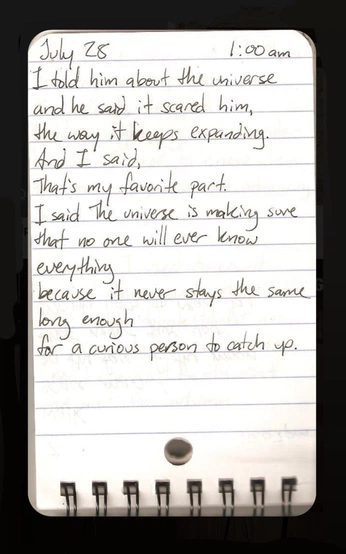 July 28 1:00 am
I told him about the universe
and he said it scared him,
the way it keeps expanding.
And I said,
That's my favorite part.
I said The universe is making sure
that no one will ever know
everything
because it never stays the same
long enough
for a curious person to catch up.